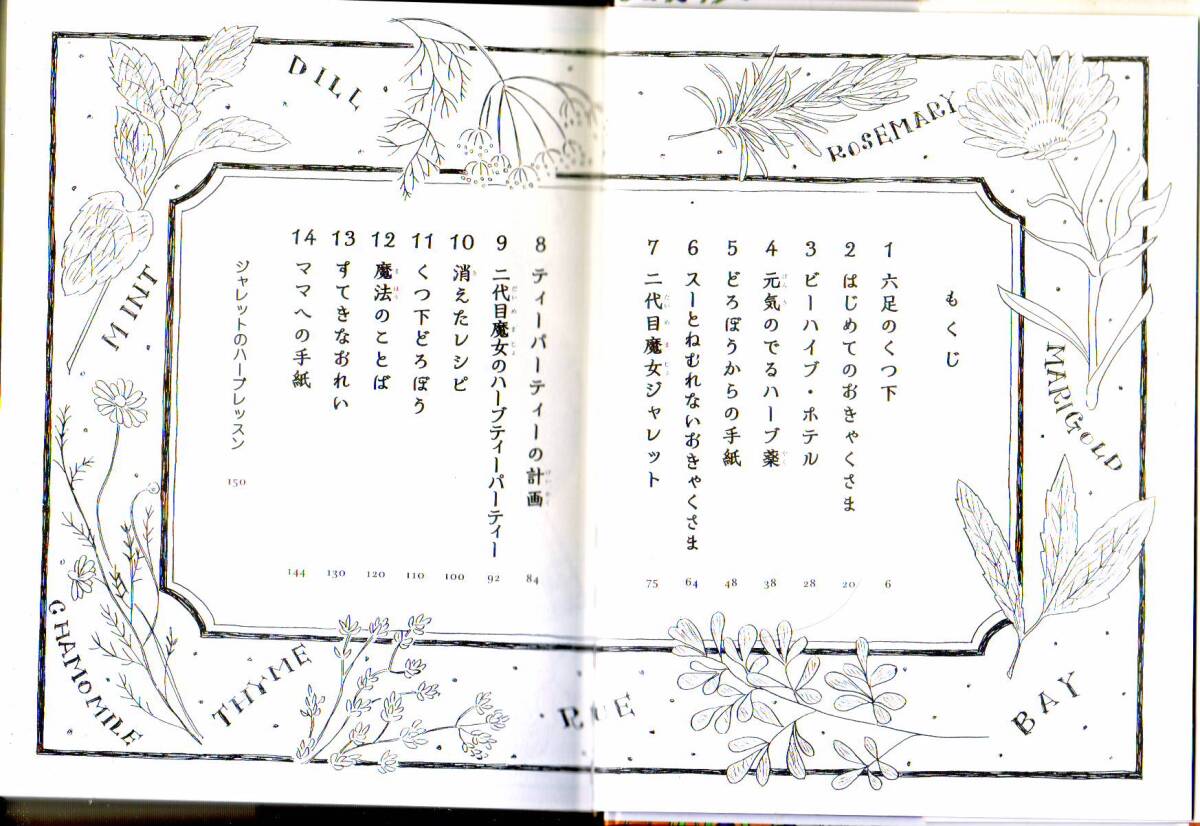 もくじ
1 六足のくつ下 6
2 はじめてのおきゃくさま 20
3 ビーハイブ・ホテル 28
4 元気のでるハーブ薬 38
げんき
やく
5 どろぼうからの手紙 48
6 スーとねむれないおきゃくさま 64
7 二代目魔女ジャレット 75
だいめまじょ
8 ティーパーティーの計画 84
けいかく
9 二代目魔女のハーブティーパーティー 92
だいめまじょ
10 消えたレシピ 100
き
11 くつ下どろぼう 110
12 魔法のことば 120
まほう
13 すてきなおれい 130
14 ママへの手紙 144
ジャレットのハーブレッスン 150
DILL
ROSEMARY
MINT
MARIGOLD
CHAMOMILE
THYME
RUE
BAY